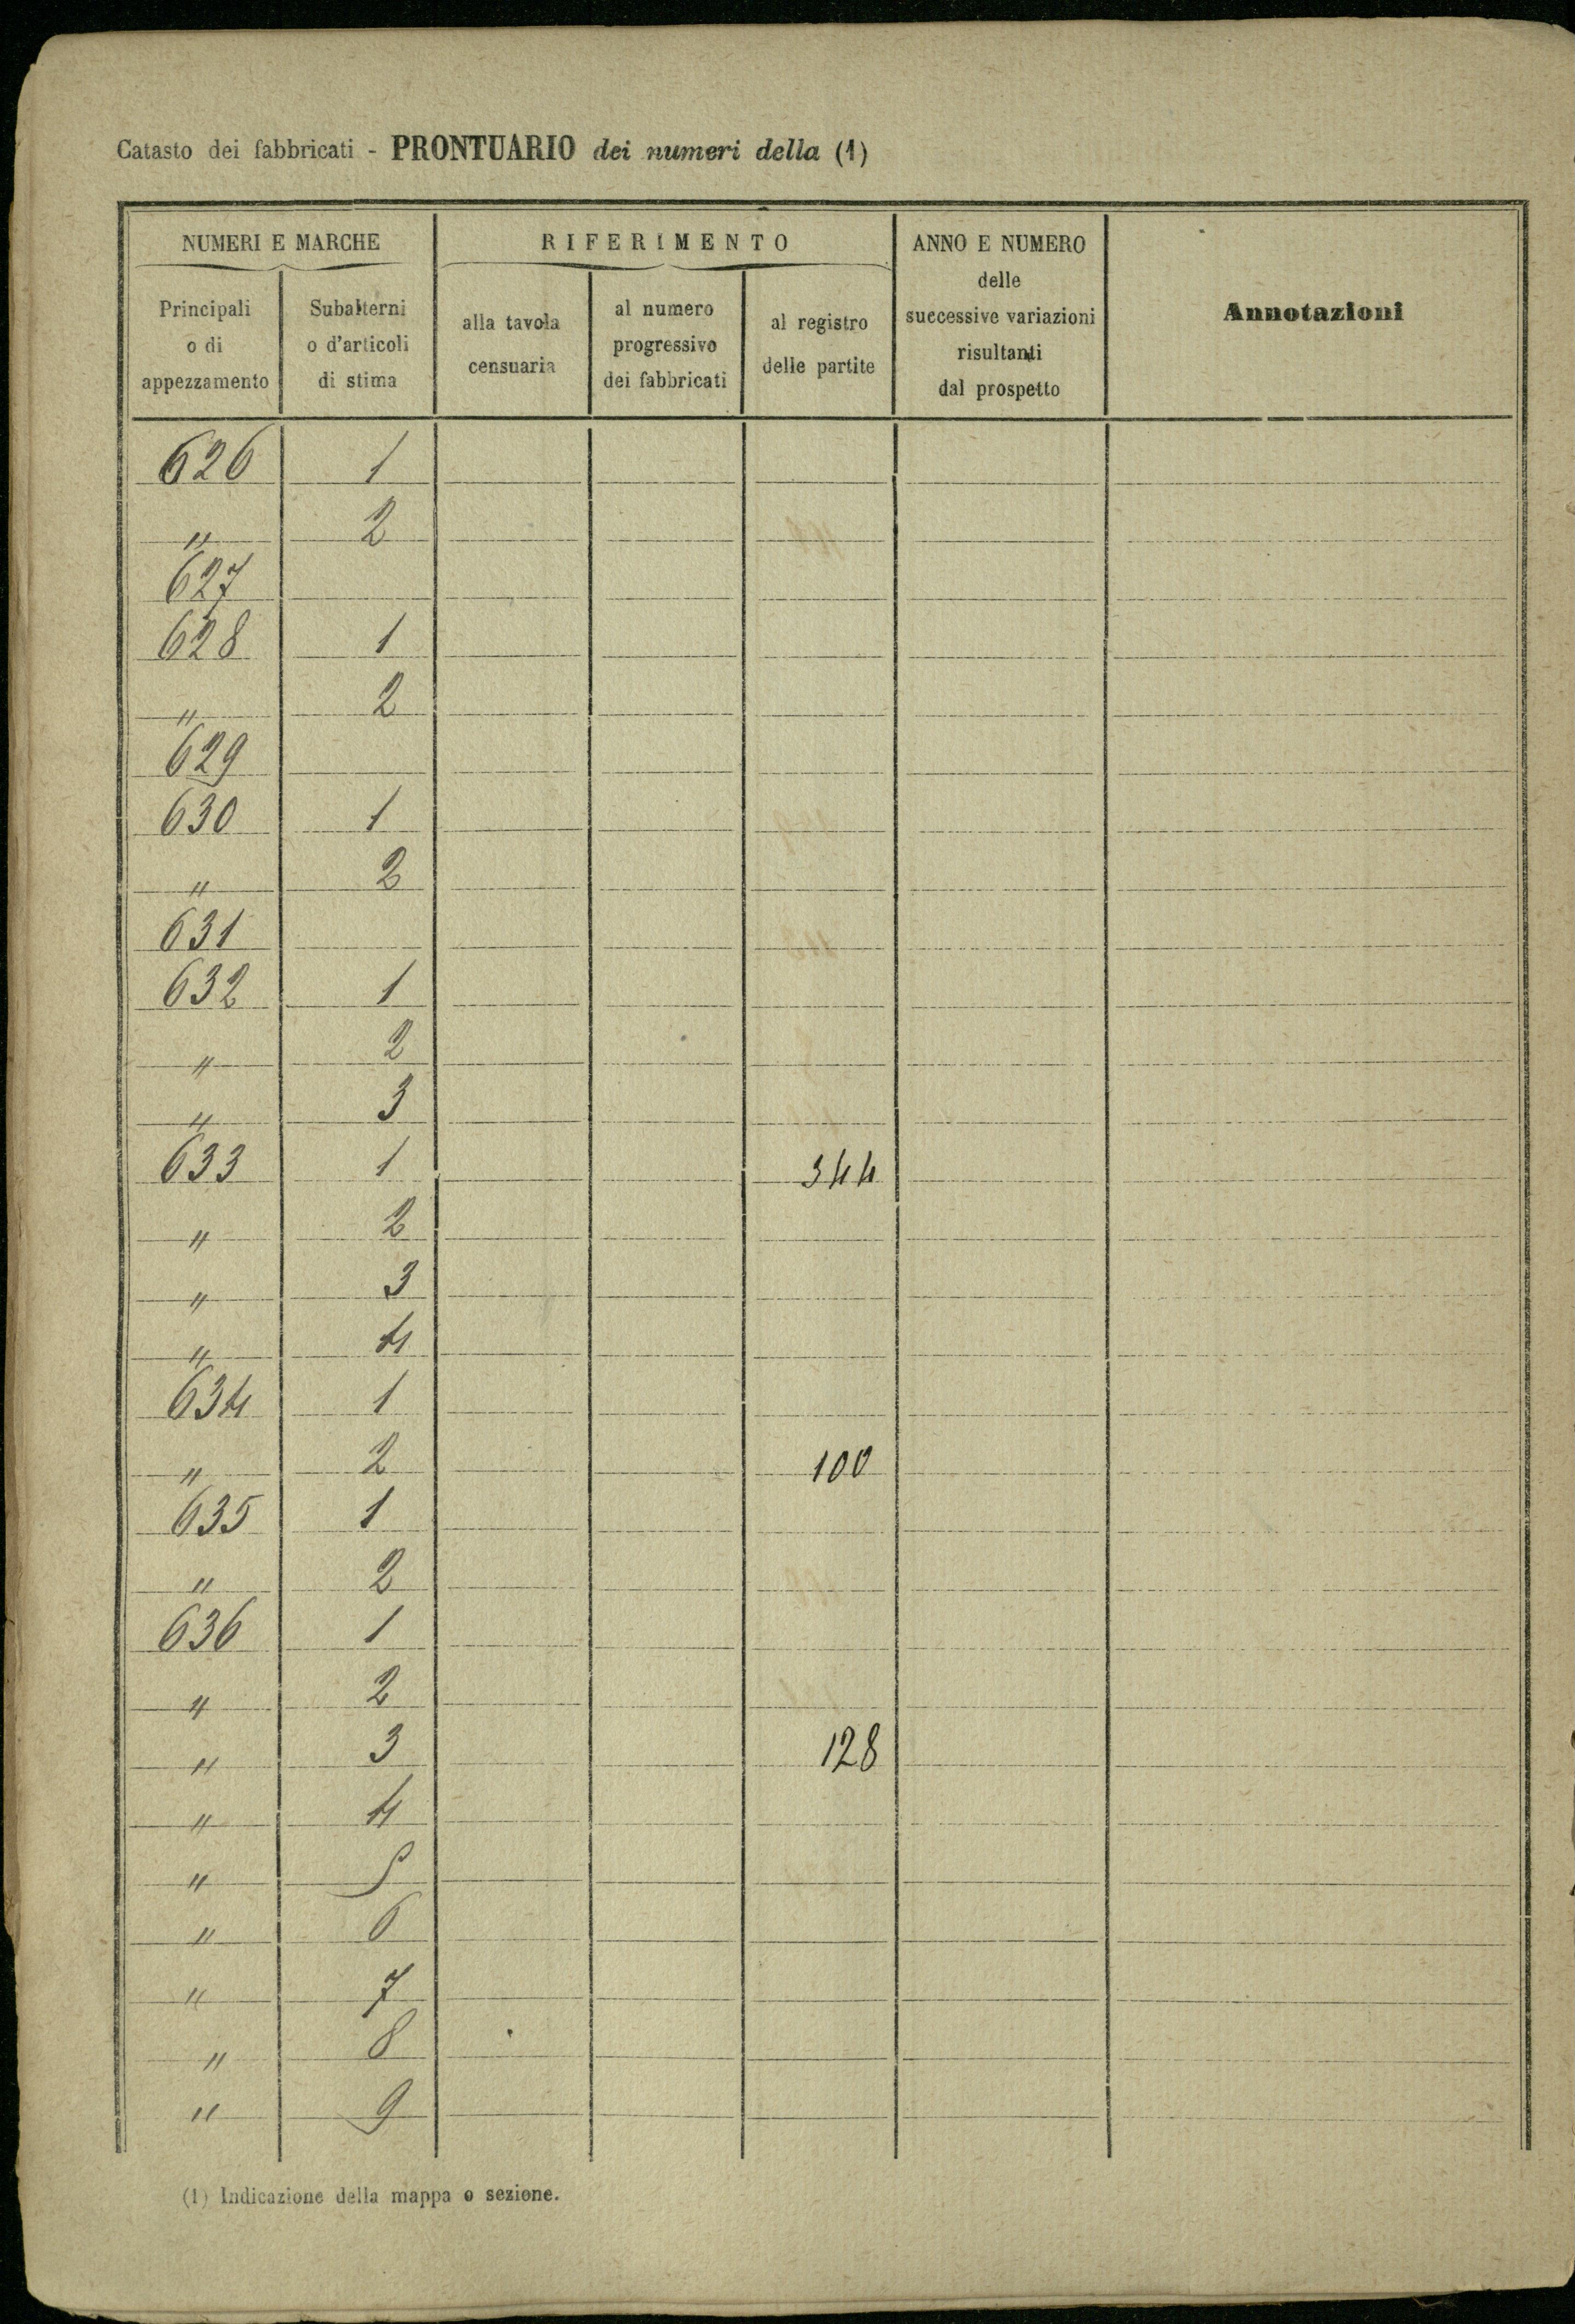 Catasto dei fabbricati - PRONTUARIO dei numeri della (1)
NUMERI E MARCHE
RIFERIMENTO
ANNO E NUMERO
delle
successive variazioni
risultanti
dal prospetto
Annotazioni
Principali
o di
appezzamento
Subalterni
o d'articoli
di stima
alla tavola
censuaria
al numero
progressivo
dei fabbricati
al registro
delle partite
626 1
" 2
627
628 1
" 2
629
630 1
" 2
631
632 1
" 2
" 3
633 1 344
" 2
" 3
" 4
634 1
" 2 100
635 1
" 2
636 1
" 2
" 3 128
" 4
" 5
" 6
" 7
" 8
" 9
(1) Indicazione della mappa o sezione.